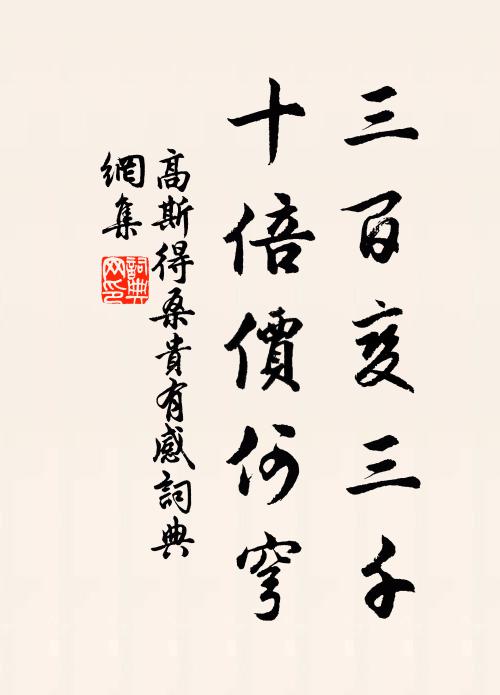 三百变三千
十倍價何穹
高斯得桑貴有感詞典
網集
詞典
网印